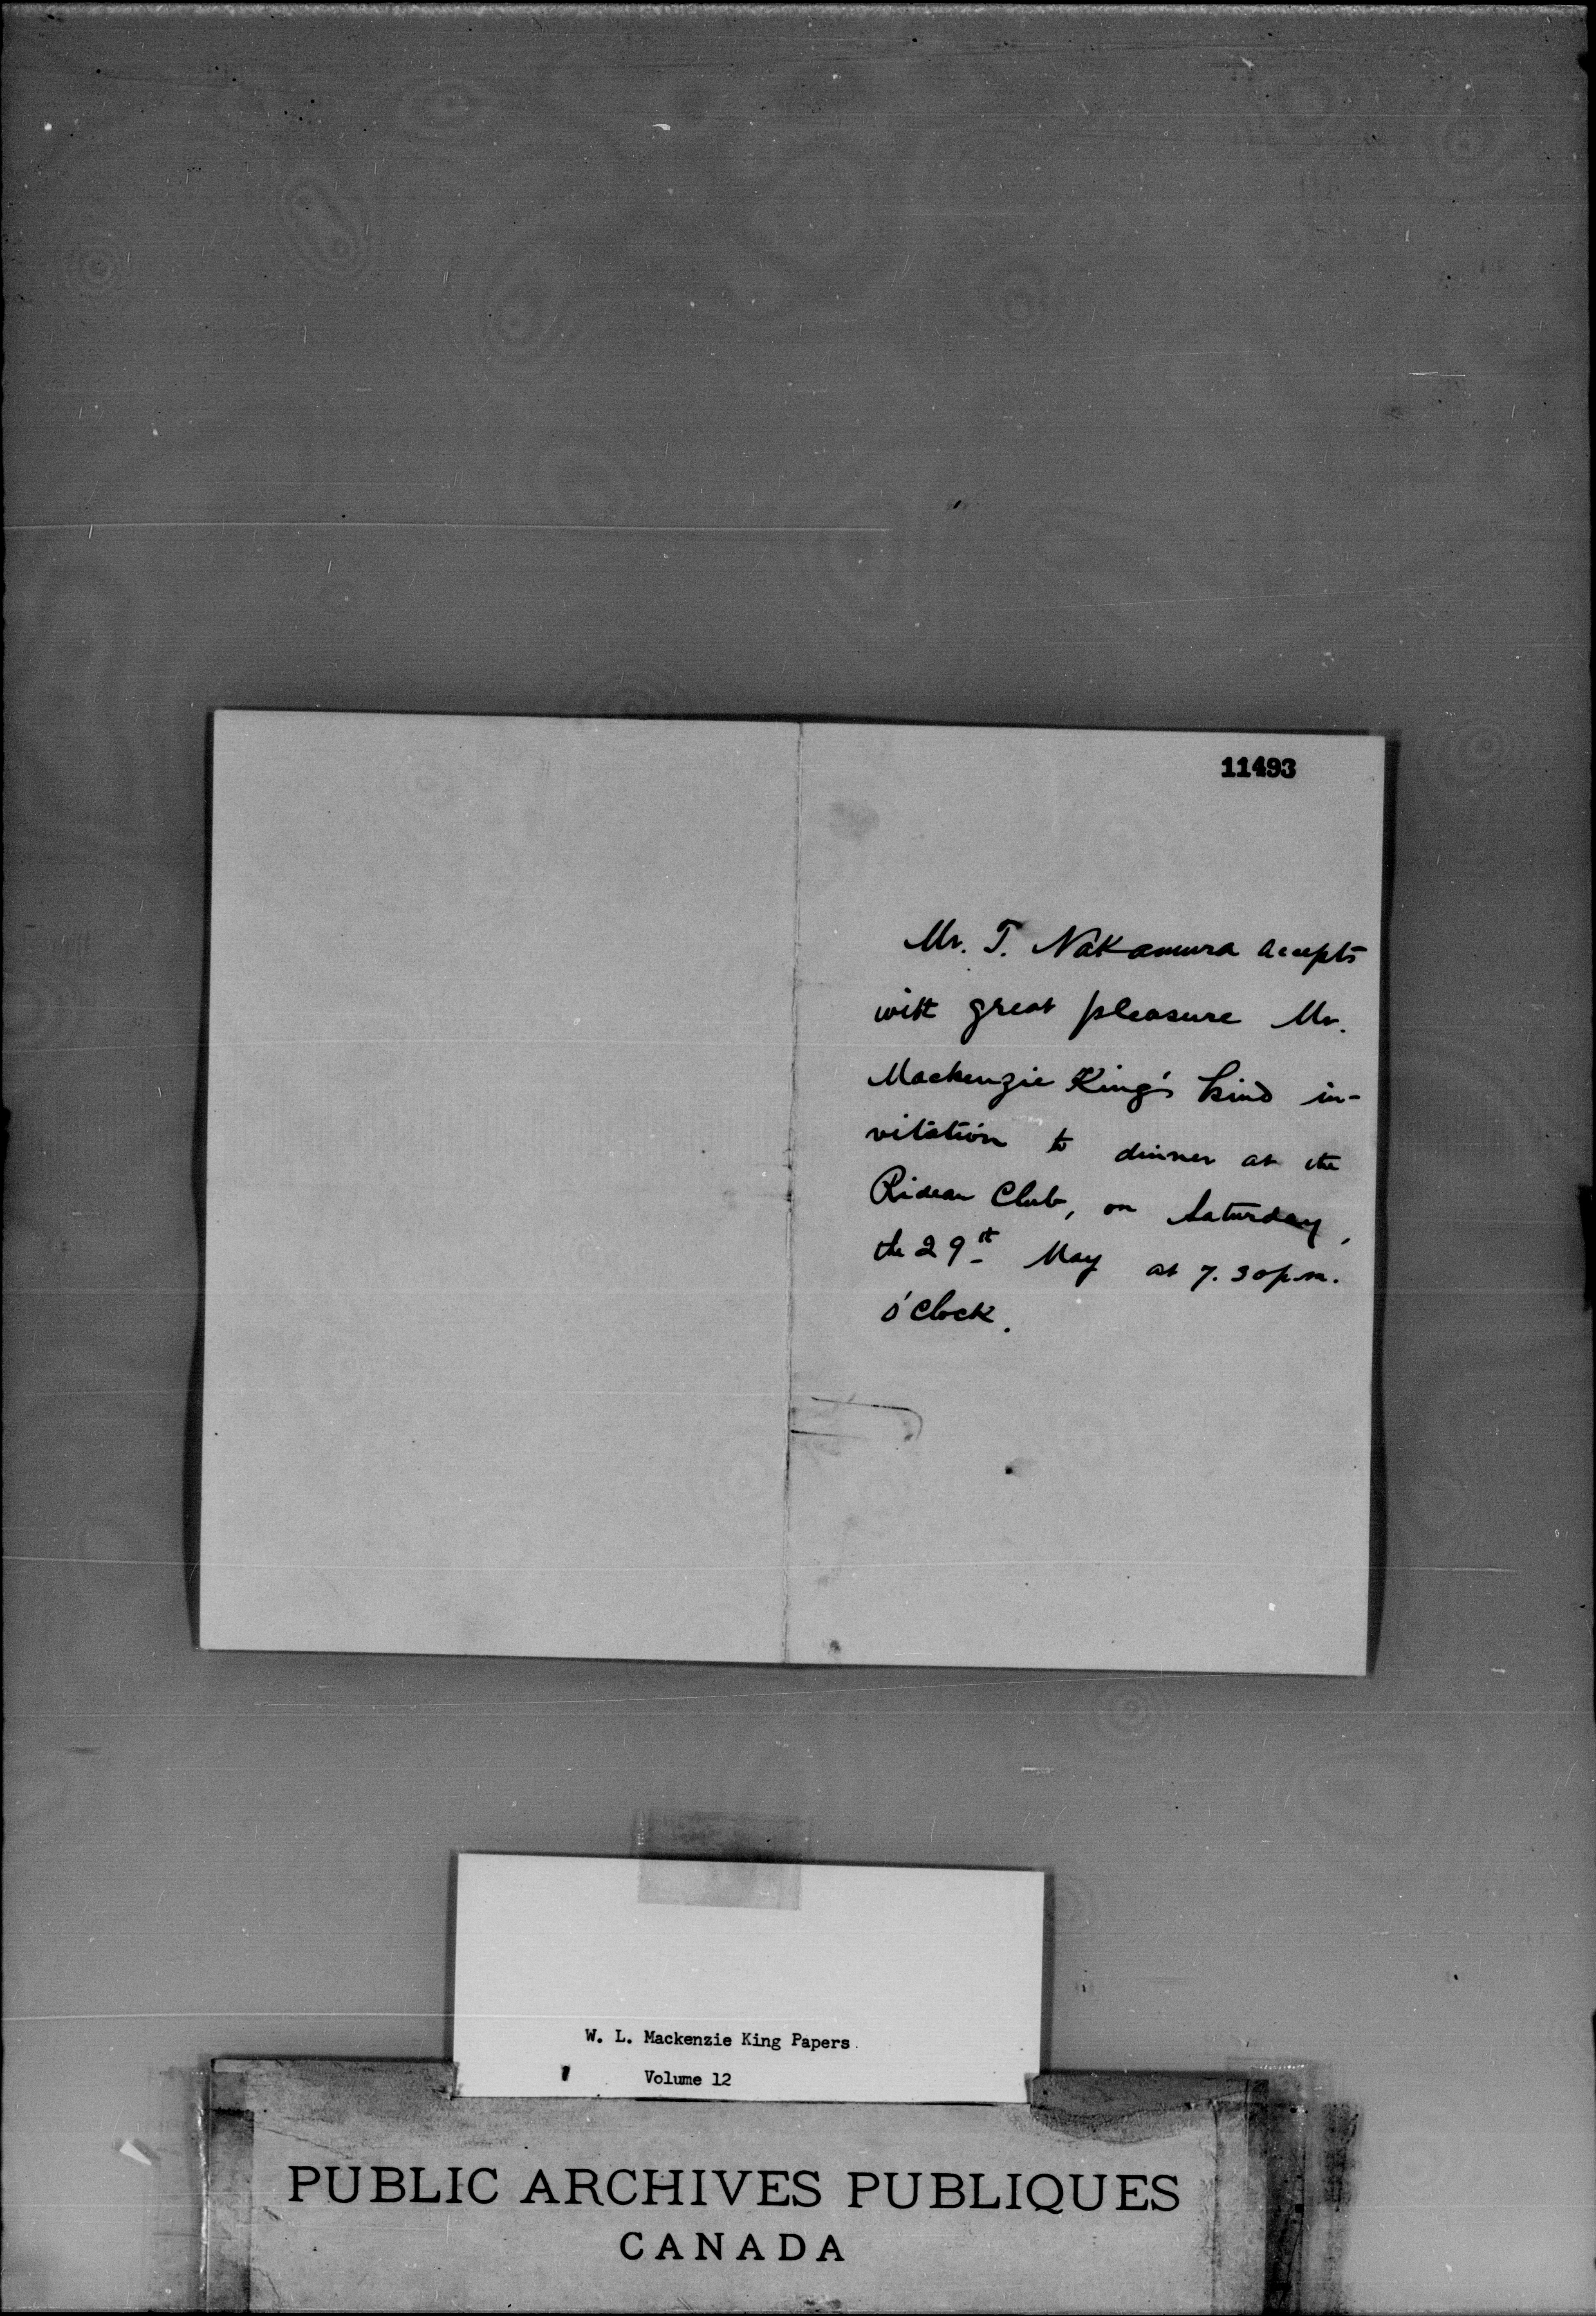 11493
Mr. T. Nakamura accepts
with great pleasure Mr.
Mackenzie King's kind in-
vitation to dinner at the
Rideau Club, on Saturday,
the 29st May at 7.30 p.m.
o'clock.
W. L. Mackenzie King Papers
Volume 12
PUBLIC ARCHIVES PUBLIQUES
CANADA